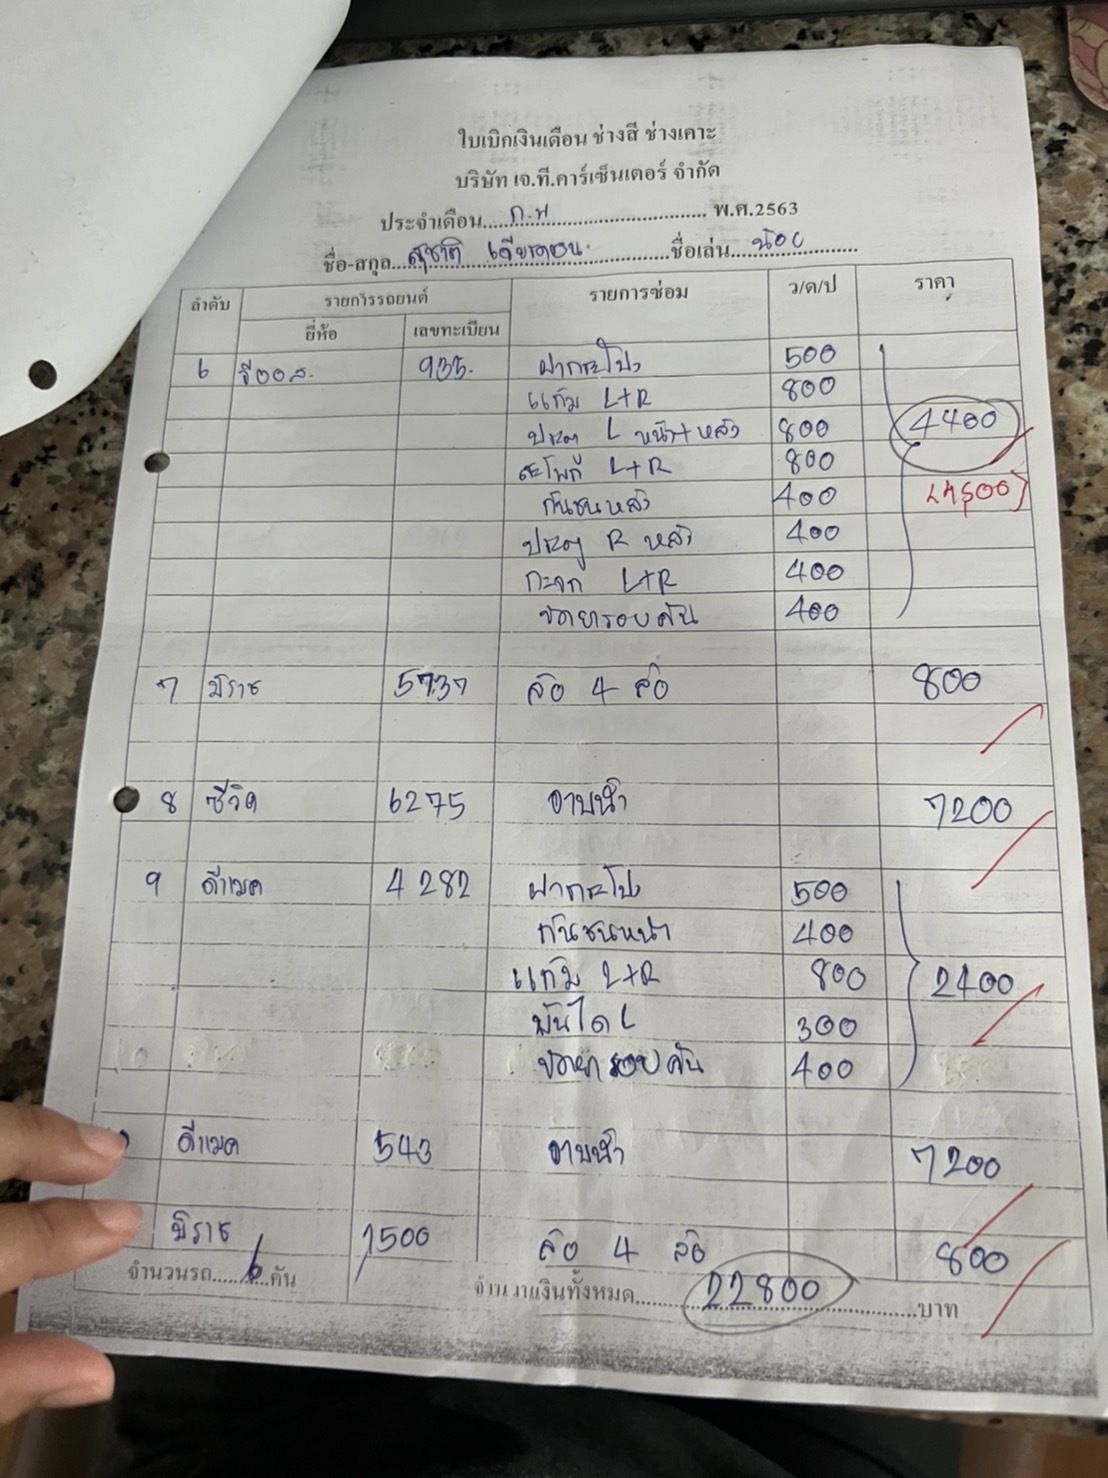 ใบเบิกเงินเดือน ช่างสี ช่างเคาะ
บริษัท เจ.ที.คาร์เซ็นเตอร์ จำกัด
ประจำเดือน.....ก.พ........ พ.ศ.2563
ชื่อ-สกุล...สุชาติ ........ชื่อเล่น...น้อย........
ลำดับ รายการรถยนต์ รายการซ่อม ว/ด/ป ราคา
ยี่ห้อ เลขทะเบียน
6 935 ฝากระโปรง 500
แก้ม L+R 800
ประตู L หน้า+หลัง 800 4400
สะโพก L+R 800
กันชนหลัง 400
ประตู R หลัง 400
กระจก L+R 400
ขัดยารอบคัน 400
7 มิราช 5737 ล้อ 4 ล้อ 800
8 ซีวิค 6275 อาบน้ำ 7200
9 ดีแมค 4282 ฝากระโปรง 500
กันชนหน้า 400
แก้ม L+R 800 2400
บันได L 300
ขัดยารอบคัน 400
ดีแมค 543 อาบน้ำ 7200
มิราช 1500 ล้อ 4 ล้อ 800
จำนวนรถ.....6.....คัน จำนวนเงินทั้งหมด.......22800.......บาท